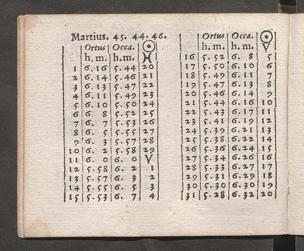 Martius. 45. 44. 46.
Ortus Occa. ☉
h. m. h. m. ♓
1 6. 16 5. 44 20
2 6. 14 5. 46 21
3 6. 13 5. 47 22
4 6. 11 5. 49 23
5 6. 10 5. 50 24
6 6. 8 5. 52 25
7 6. 7 5. 53 26
8 6. 5 5. 55 27
9 6. 3 5. 57 28
10 6. 2 5. 58 29
11 6. 0 6. 0 ♈
12 5. 58 6. 2 1
13 5. 57 6. 3 2
14 5. 55 6. 5 3
15 5. 53 6. 7 4
Ortus Occa. ☉
h. m. h. m. ♈
16 5. 52 6. 8 5
17 5. 50 6. 10 6
18 5. 49 6. 11 7
19 5. 47 6. 13 8
20 5. 46 6. 14 9
21 5. 44 6. 16 10
22 5. 42 6. 18 11
23 5. 41 6. 19 12
24 5. 39 6. 21 13
25 5. 38 6. 22 14
26 5. 36 6. 24 15
27 5. 34 6. 26 16
28 5. 33 6. 27 17
29 5. 31 6. 29 18
30 5. 30 6. 30 19
31 5. 28 6. 32 20